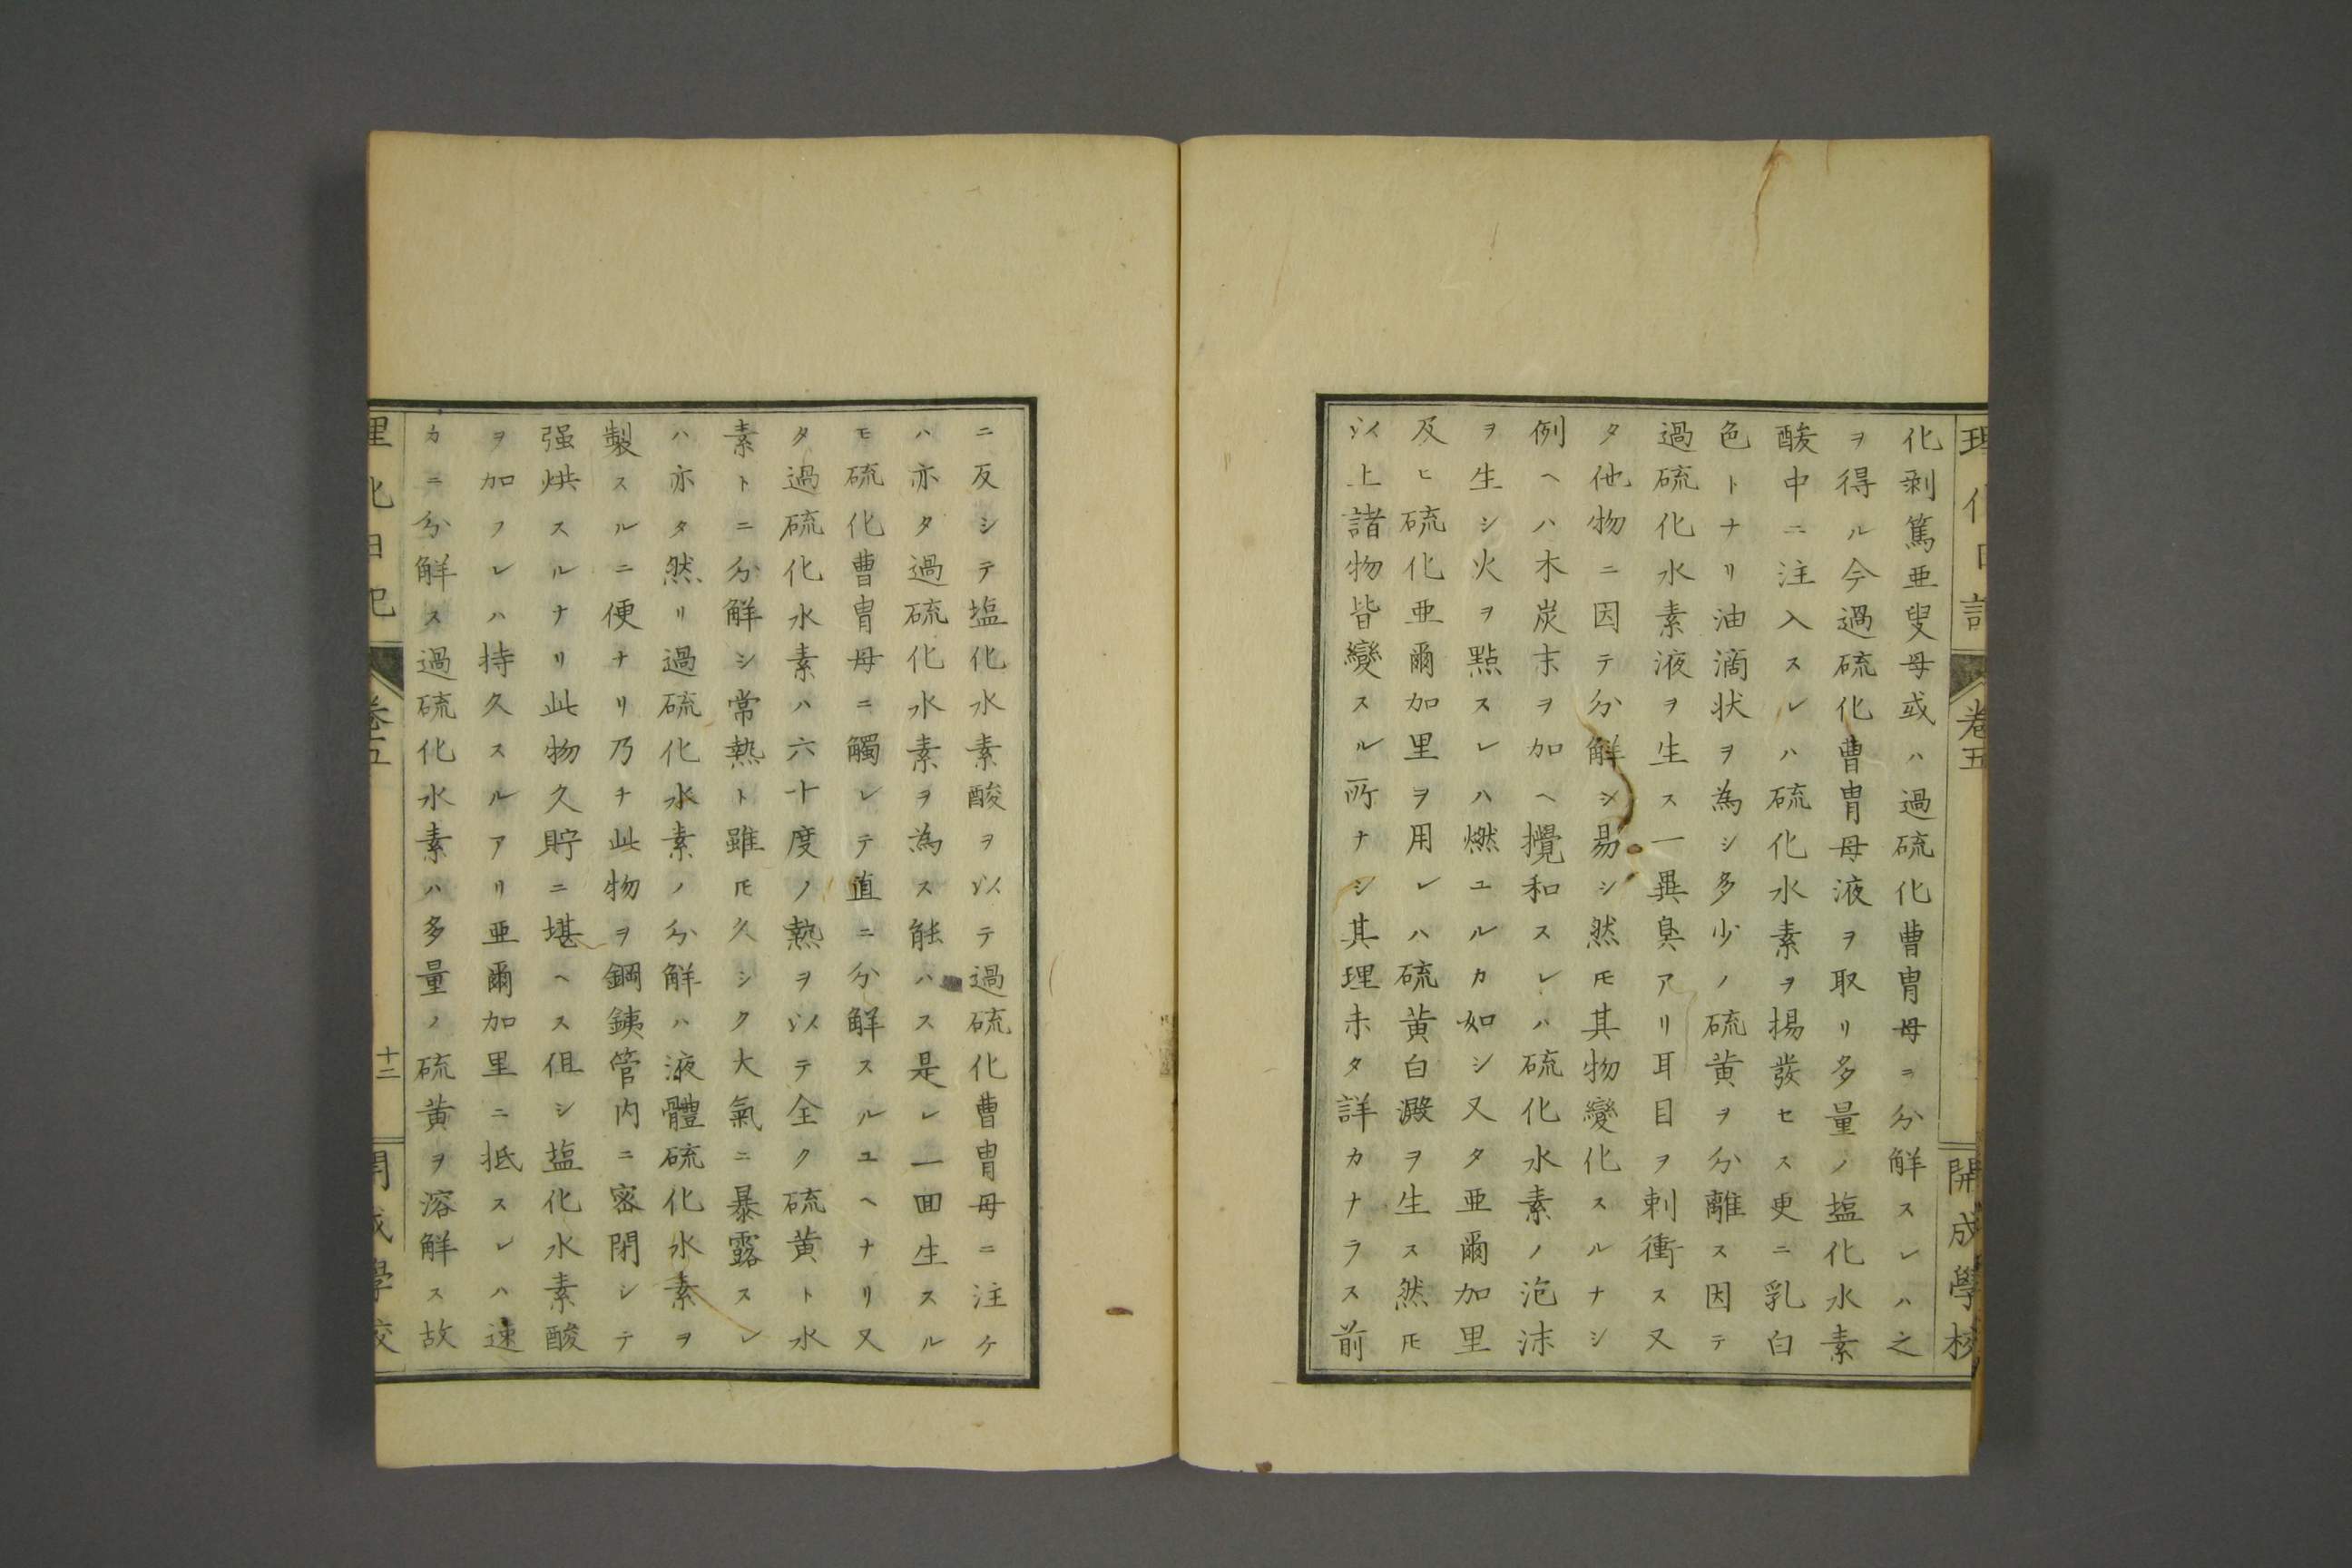 化剥篤亜叟母或ハ過硫化曹冑母ニ分解スレハ之
ヲ得ル今過硫化曹冑母液ヲ取リ多量ノ塩化水素
酸中ニ注入スレハ硫化水素ヲ揚発セス更ニ乳白
色トナリ油滴状ヲ為シ多少ノ硫黄ヲ分離ス因テ
過硫化水素液ヲ生ス一異臭アリ耳目ヲ刺衝ス又
タ他物ニ因テ分解シ易シ然𪜈其物変化スルナシ
例ヘハ木炭末ヲ加ヘ攪和スレハ硫化水素ノ泡沫
ヲ生シ火ヲ點スレハ燃ユルカ如シ又タ亜爾加里
及ヒ硫化亜爾加里ヲ用レハ硫黄白澱ヲ生ス然𪜈
以上諸物皆變スル所ナシ其理未タ詳カナラス前
理化日記
巻五
開成學校
ニ反シテ塩化水素酸ヲ以テ過硫化曹冑母ニ注ケ
ハ亦タ過硫化水素ヲ為ス能ハス是レ一回生スル
モ硫化曹冑母ニ觸レテ直ニ分解スルユヘナリ又
タ過硫化水素ハ六十度ノ熱ヲ以テ全ク硫黄ト水
素トニ分解シ常熱ト雖𪜈久シク大氣ニ暴露スレ
ハ亦タ然リ過硫化水素ノ分解ハ液體硫化水素ヲ
製スルニ便ナリ乃チ此物ヲ鋼銕管内ニ密閉シテ
强烘スルナリ此物久貯ニ堪ヘス但シ塩化水素酸
ヲ加フレハ持久スルアリ亜爾加里ニ抵スレハ速
カニ分解ス過硫化水素ハ多量ノ硫黄ヲ溶解ス故
理化日記
巻五
十二
開成學校